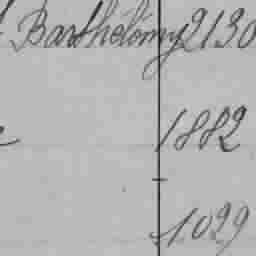 Barthélémy 2130
1882
1029